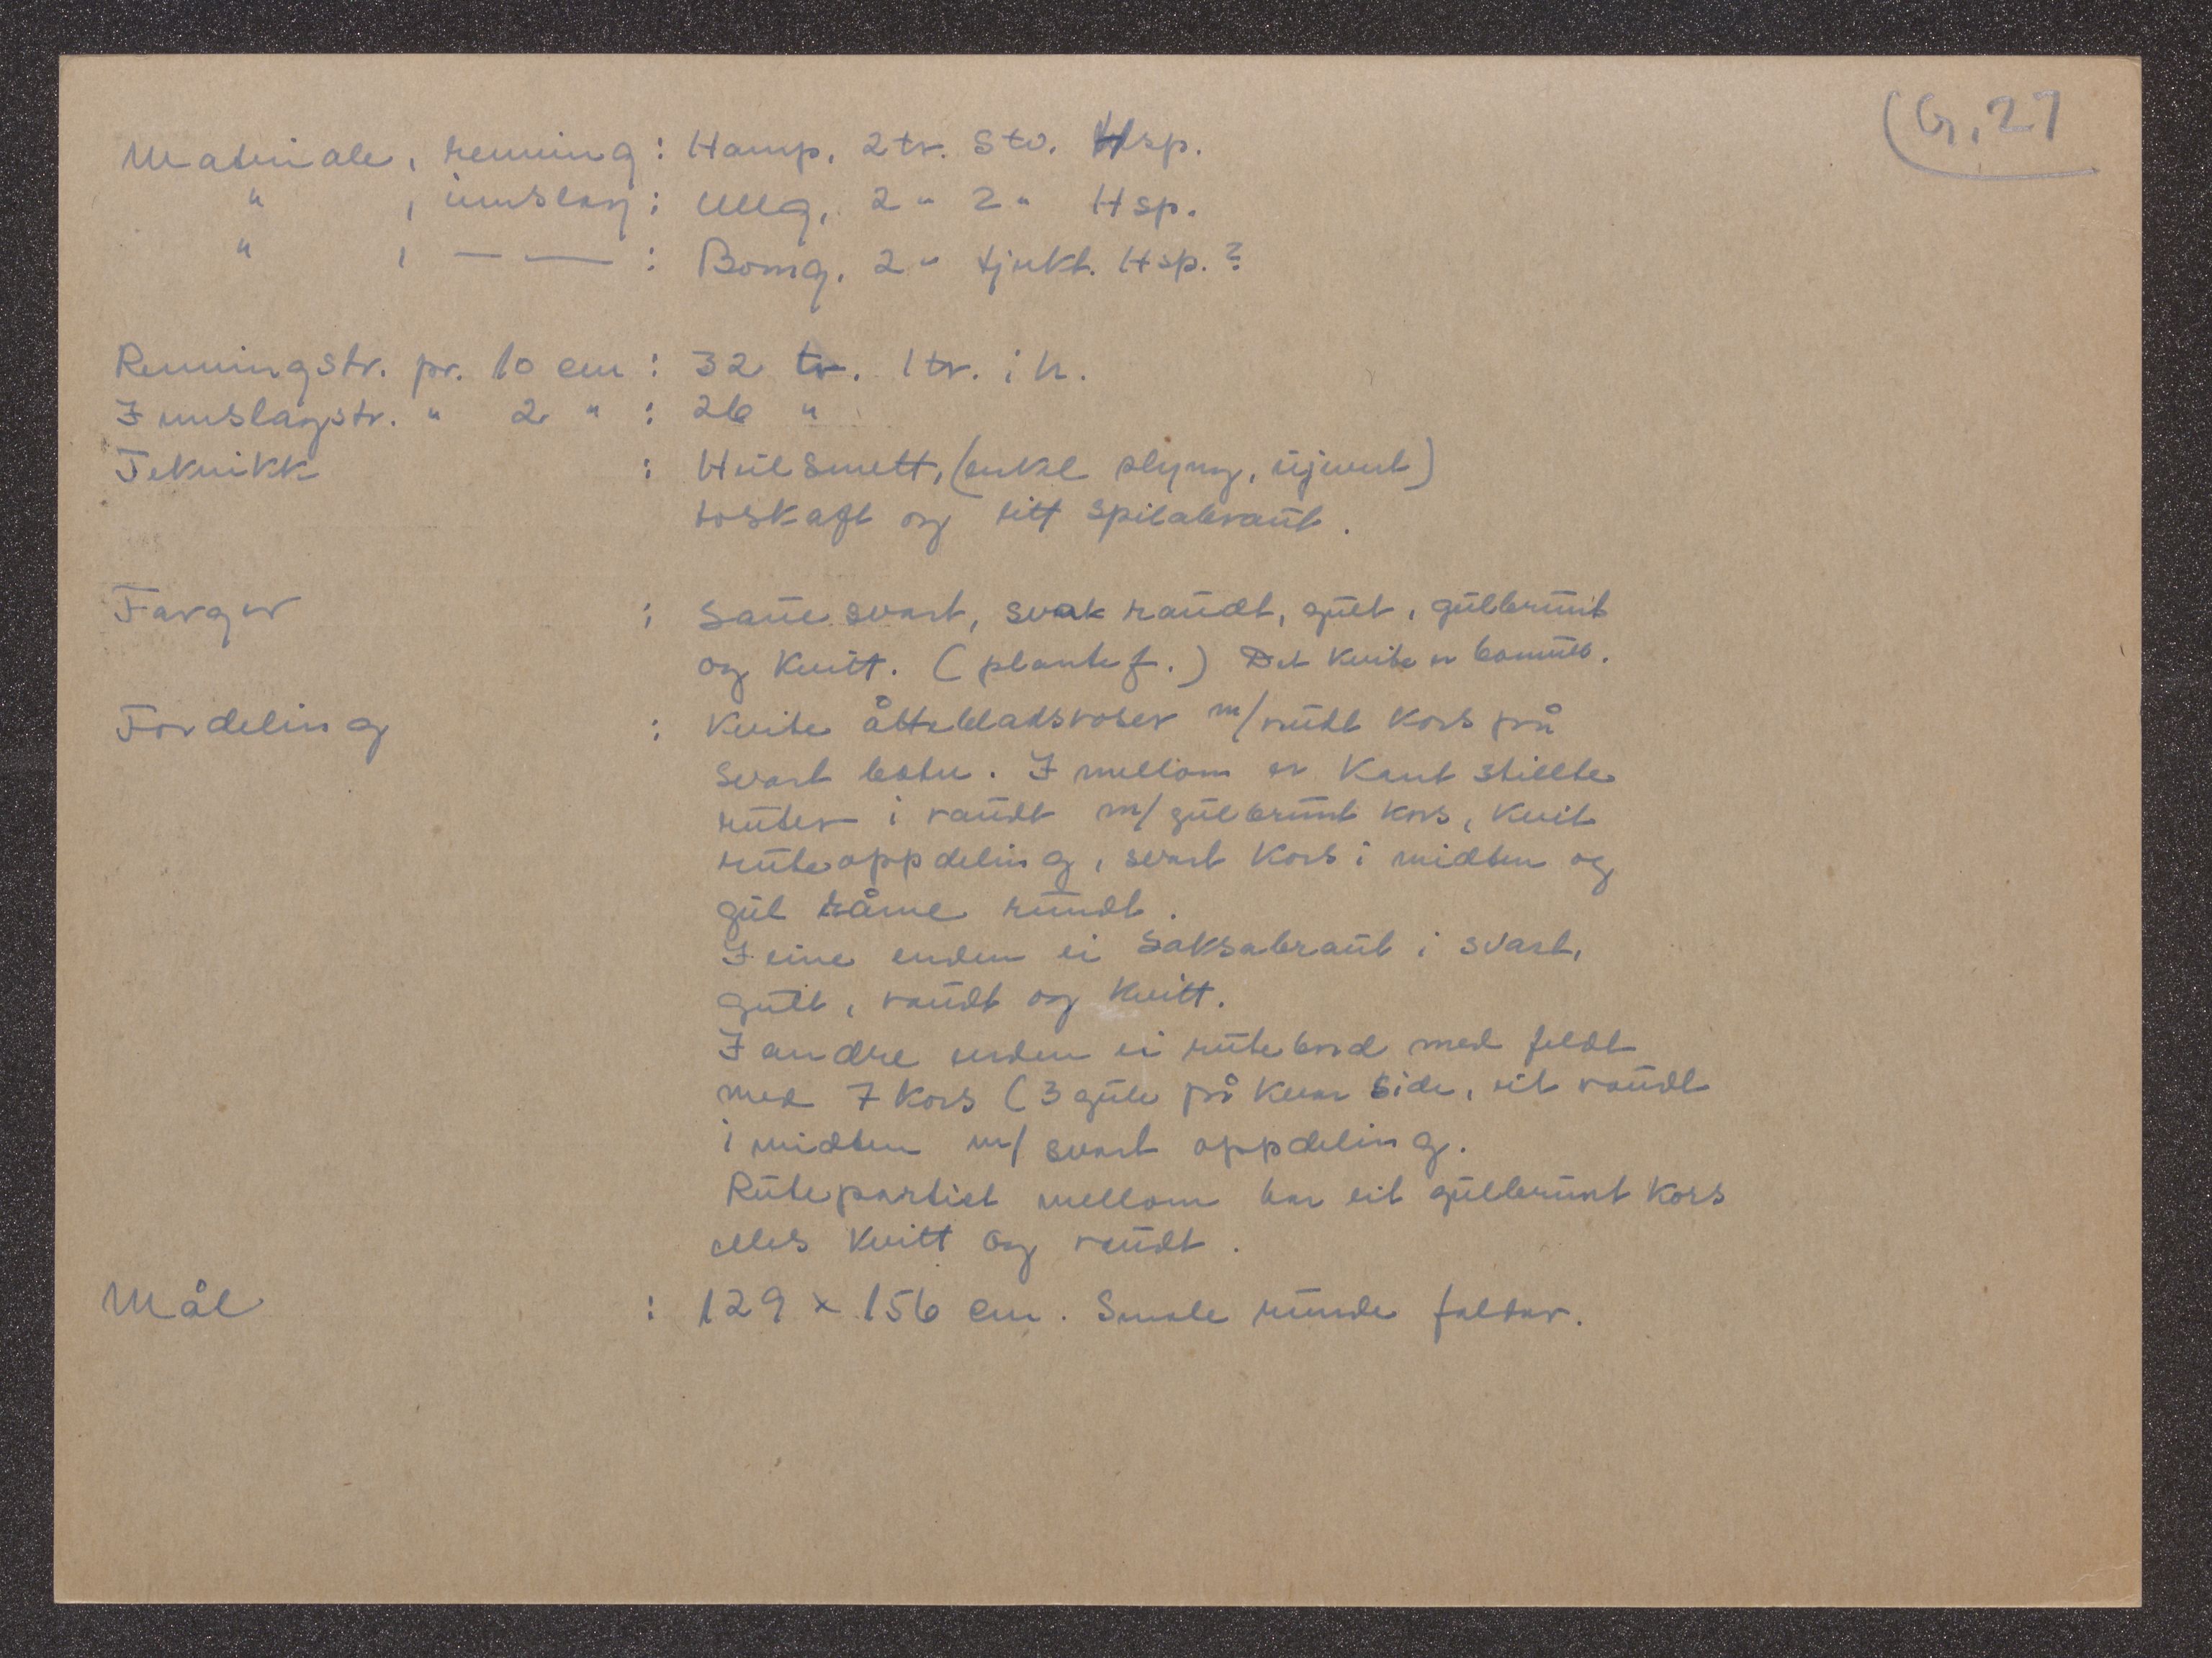 G, 27
Materiale, renning : Hamp. 2 tr. S tv. Hsp.
" , innslag : Ullg. 2 " Z " Hsp.
" , — — : Bomg. 2 " tjukt. Hsp. ?
Renningstr. pr. 10 cm : 32 tr. 1 tr. i h.
Innslagstr. " 2 " : 26 "
Teknikk : Heilsmett, (enkel slyng, ujevnt)
toskaft og litt spilabraut.
Farger : Sauesvart, svak raudt, gult, gulbrunt
og kvitt. (plantef.) Det kvite er bomull.
Fordeling : Kvite åttebladsroser m/rudt kors på
svart botn. I mellom er kantstillte
ruter i raudt m/ gulbrunt kors, kvit
ruteoppdeling, svart kors i midten og
gul råme rundt.
I eine enden ei saksabraut i svart,
gult, raudt og kvitt.
I andre enden ei rutebord med feldt
med 7 kors (3 gule på kvar side, eit raudt
i midten m/ svart oppdeling.
Rutepartiet mellom har eit gulbrunt kors
elles kvitt og raudt.
Mål : 129 x 156 cm. Smale runde faldar.